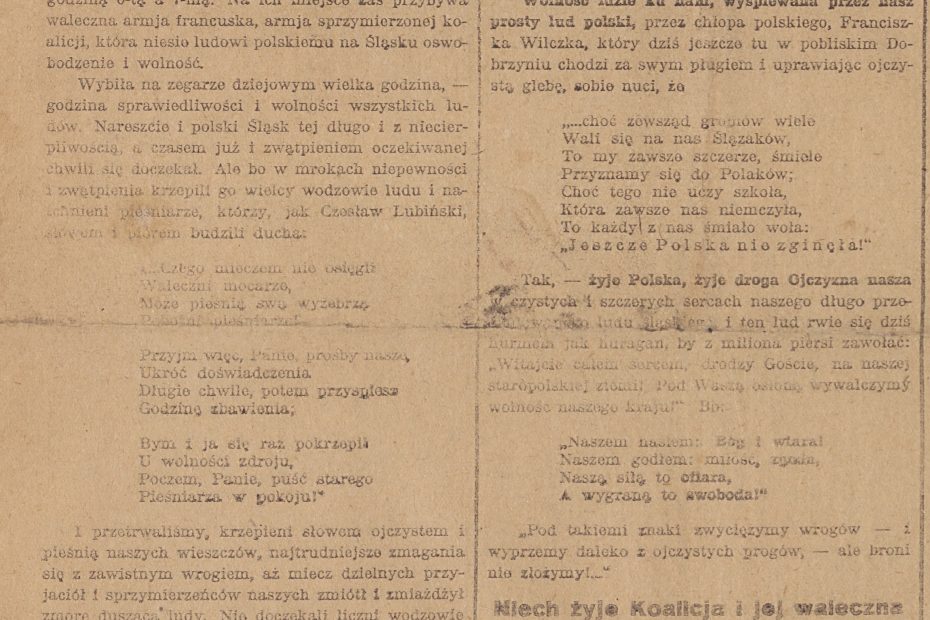 godziną 6-tą a 7-mą. Na ich miejsce zaś przybywa
waleczna armja francuska, armja sprzymierzonej ko-
alicji, która niesie ludowi polskiemu na Śląsku oswo-
bodzenie i wolność.
Wybiła na zegarze dziejowym wielka godzina, —
godzina sprawiedliwości i wolności wszystkich lu-
dów. Nareszcie i polski Śląsk tej długo i z niecier-
pliwością, a czasem już i zwątpieniem oczekiwanej
chwili się doczekał. Ale bo w mrokach niepewności
i zwątpienia krzepili go wielcy wodzowie ludu i na-
tchnieni pieśniarze, którzy, jak Czesław Lubiński,
słowem i piórem budzili ducha:
„...Czego mieczem nie osięgli
Waleczni mocarze,
Może pieśnią swą wyżebrzą
pieśniarze!
Przyjm więc, Panie, prośby nasze,
Ukróć doświadczenia
Długie chwile, potem przyspiesz
Godzinę zbawienia;
Bym i ja się raz pokrzepił
U wolności zdroju,
Poczem, Panie, puść starego
Pieśniarza w pokoju!"
I przetrwaliśmy, krzepieni słowem ojczystem i
pieśnią naszych wieszczów, najtrudniejsze zmagania
się z zawistnym wrogiem, aż miecz dzielnych przy-
jaciół i sprzymierzeńców naszych zmiótł i zmiażdżył
zmorę duszącą ludy. Nie doczekali liczni wodzowie
Wolność idzie ku nam, wyśpiewana przez nasz
prosty lud polski, przez chłopa polskiego, Francisz-
ka Wilczka, który dziś jeszcze tu w pobliskim Do-
brzyniu chodzi za swym pługiem i uprawiając ojczy-
stą glebę, sobie nuci, że
„...choć zewsząd gromów wiele
Wali się na nas Ślązaków,
To my zawsze szczerze, śmiele
Przyznamy się do Polaków;
Choć tego nie uczy szkoła,
Która zawsze nas niemczyła,
To każdy z nas śmiało woła:
„Jeszcze Polska nie zginęła!"
Tak, — żyje Polska, żyje droga Ojczyzna nasza
w czystych i szczerych sercach naszego długo prze-
ludu śląskiego, i ten lud rwie się dziś
hurmem jak huragan, by z miliona piersi zawołać:
„Witajcie całem sercem, drodzy Goście, na naszej
staropolskiej ziemi! Pod Waszą osłoną wywalczymy
wolność naszego kraju!" Bo:
„Naszem hasłem: Bóg i wiara!
Naszem godłem: miłość, zgoda,
Naszą siłą to ofiara,
A wygraną to swoboda!"
„Pod takiemi znaki zwyciężymy wrogów — i
wyprzemy daleko z ojczystych progów, — ale broni
nie złożymy!..."
Niech żyje Koalicja i jej waleczna